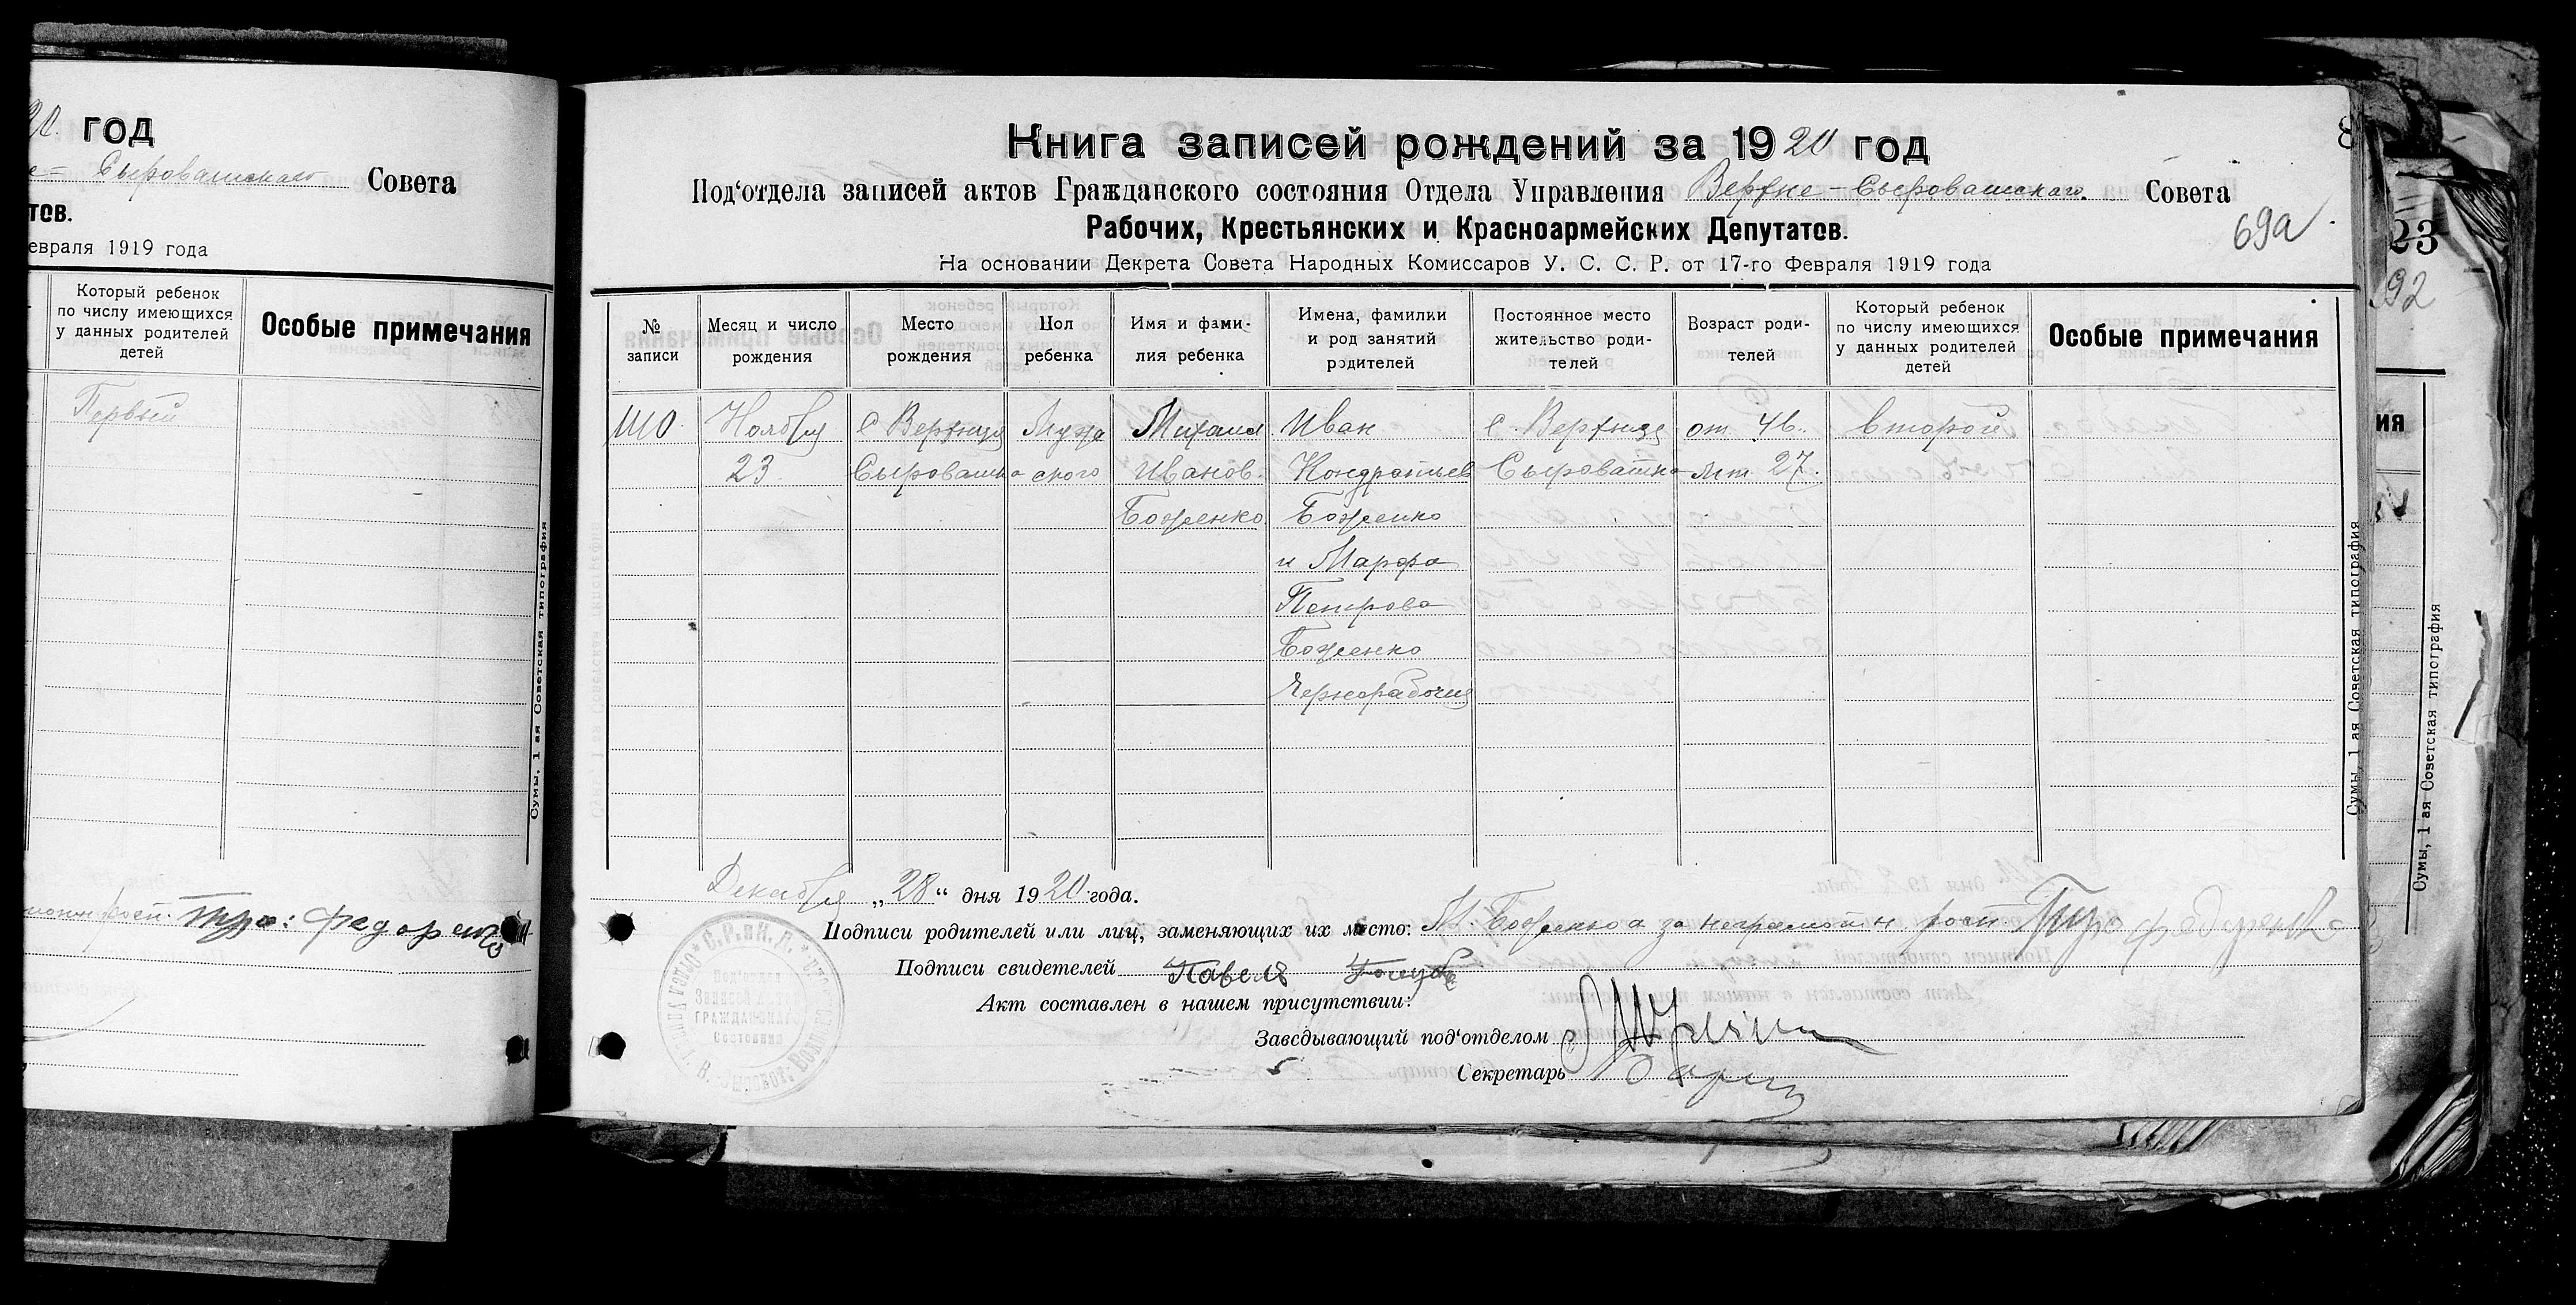 20 год
е= Сыроватского Совета
тов.
евраля 1919 года
Который ребенок
по числу имеющихся
у данных родителей
детей
Особые примечания
Первый
Федоренко
Сумы, 1 ая Советская типография
Книга записей рождений за 1920 год
Под‘отдела записей актов Гражданского состояния Отдела Управления Верхне-Сыроватского. Совета
Рабочих, Крестьянских и Красноармейских Депутатов.
69а
На основании Декрета Совета Народных Комиссаров У. С. С. Р. от 17-го Февраля 1919 года
№
записи
Месяц и число
рождения
Место
рождения
Пол
ребенка
Имя и фами-
лия ребенка
Имена, фамилии
и род занятий
родителей
Постоянное место
жительство роди-
телей
Возраст роди-
телей
Который ребенок
по числу имеющихся
у данных родителей
детей
Особые примечания
Ноября
23
С Верхняя
Сыроватка
Муже
ского
Михаил
Иванов.
Боженко
Иван
Кондратьев
Боженко
и Марфа
Петрова
Боженко
Чернорабочий
С. Верхняя
Сыроватка
от. 46.
мт. 27.
второй
Сумы, 1 ая Советская типография
Декабря „28“ дня 1920 года.
Подписи родителей или лиц, заменяющих их место: Боженко а за неграмотн росп Федоренко
Подписи свидетелей Павел Голуб
Акт составлен в нашем присутствии:
Заведывающий под‘отделом
Секретарь
ГРАЖДАНСКАГО
Состояния
23
92
ия
Сумы, 1 ая Советская типография